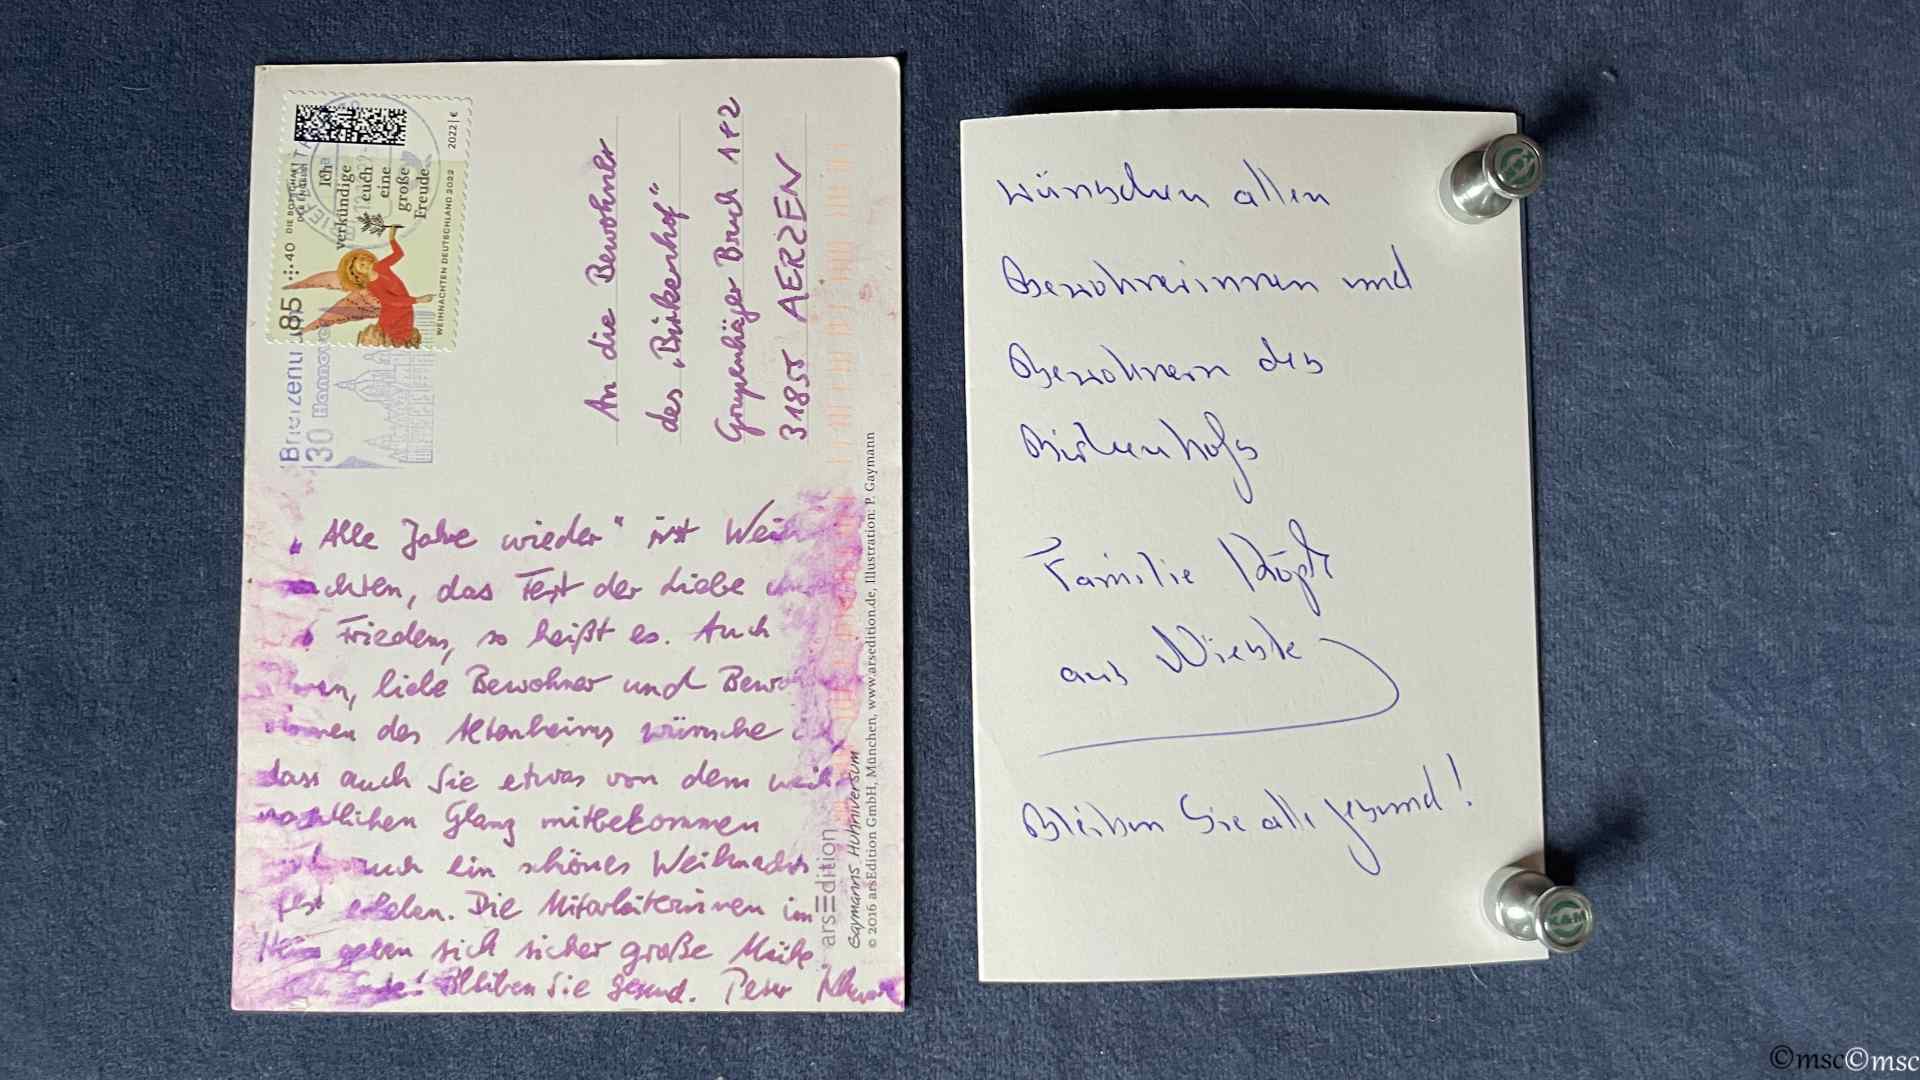 DIE BOTSCHAFT
DER ENGEL
Ich
verkündige
euch
eine
große
Freude.
85
+40
WEIHNACHTEN DEUTSCHLAND 2022
2022 | €
Briefzentrum
30 Hannover
An die Bewohner
des „Birkenhof“
Grupenhäger Bruch 1+2
31855 AERZEN
„Alle Jahre wieder“ ist Weih
chten, das Fest der Liebe
Friedens, so heißt es. Auch
liebe Bewohner und Bewoh
innen des Altenheims wünsche
dass auch Sie etwas von dem weih
nachtlichen Glanz mitbekommen
auch ein schönes Weihnachts
fest erleben. Die Mitarbeiterinnen im
Heim geben sich sicher große Mühe.
Bleiben Sie gesund. Peter
arsEdition
GAYMANNS HUHNIVERSUM
© 2016 arsEdition GmbH, München, www.arsedition.de, Illustration: P. Gaymann
wünschen allen
Bewohnerinnen und
Bewohnern des
Birkenhofs
Familie
aus
Bleiben Sie alle gesund!
K&M
©msc©msc